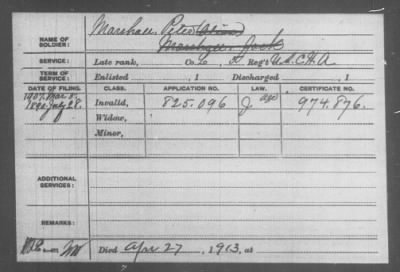 NAME OF SOLDIER: Marshall Peter Alias
Marshall Jack
SERVICE: Late rank, Co. Reg't U.S.C.H.A
TERM OF SERVICE: Enlisted , 1 Discharged , 1
DATE OF FILING. CLASS. APPLICATION NO. LAW. CERTIFICATE NO.
1907. Mar. 8.
1890. July 28. Invalid, 825.096 J age 974.876.
Widow,
Minor,
ADDITIONAL SERVICES:
REMARKS:
Died Apr. 27, 1913, at